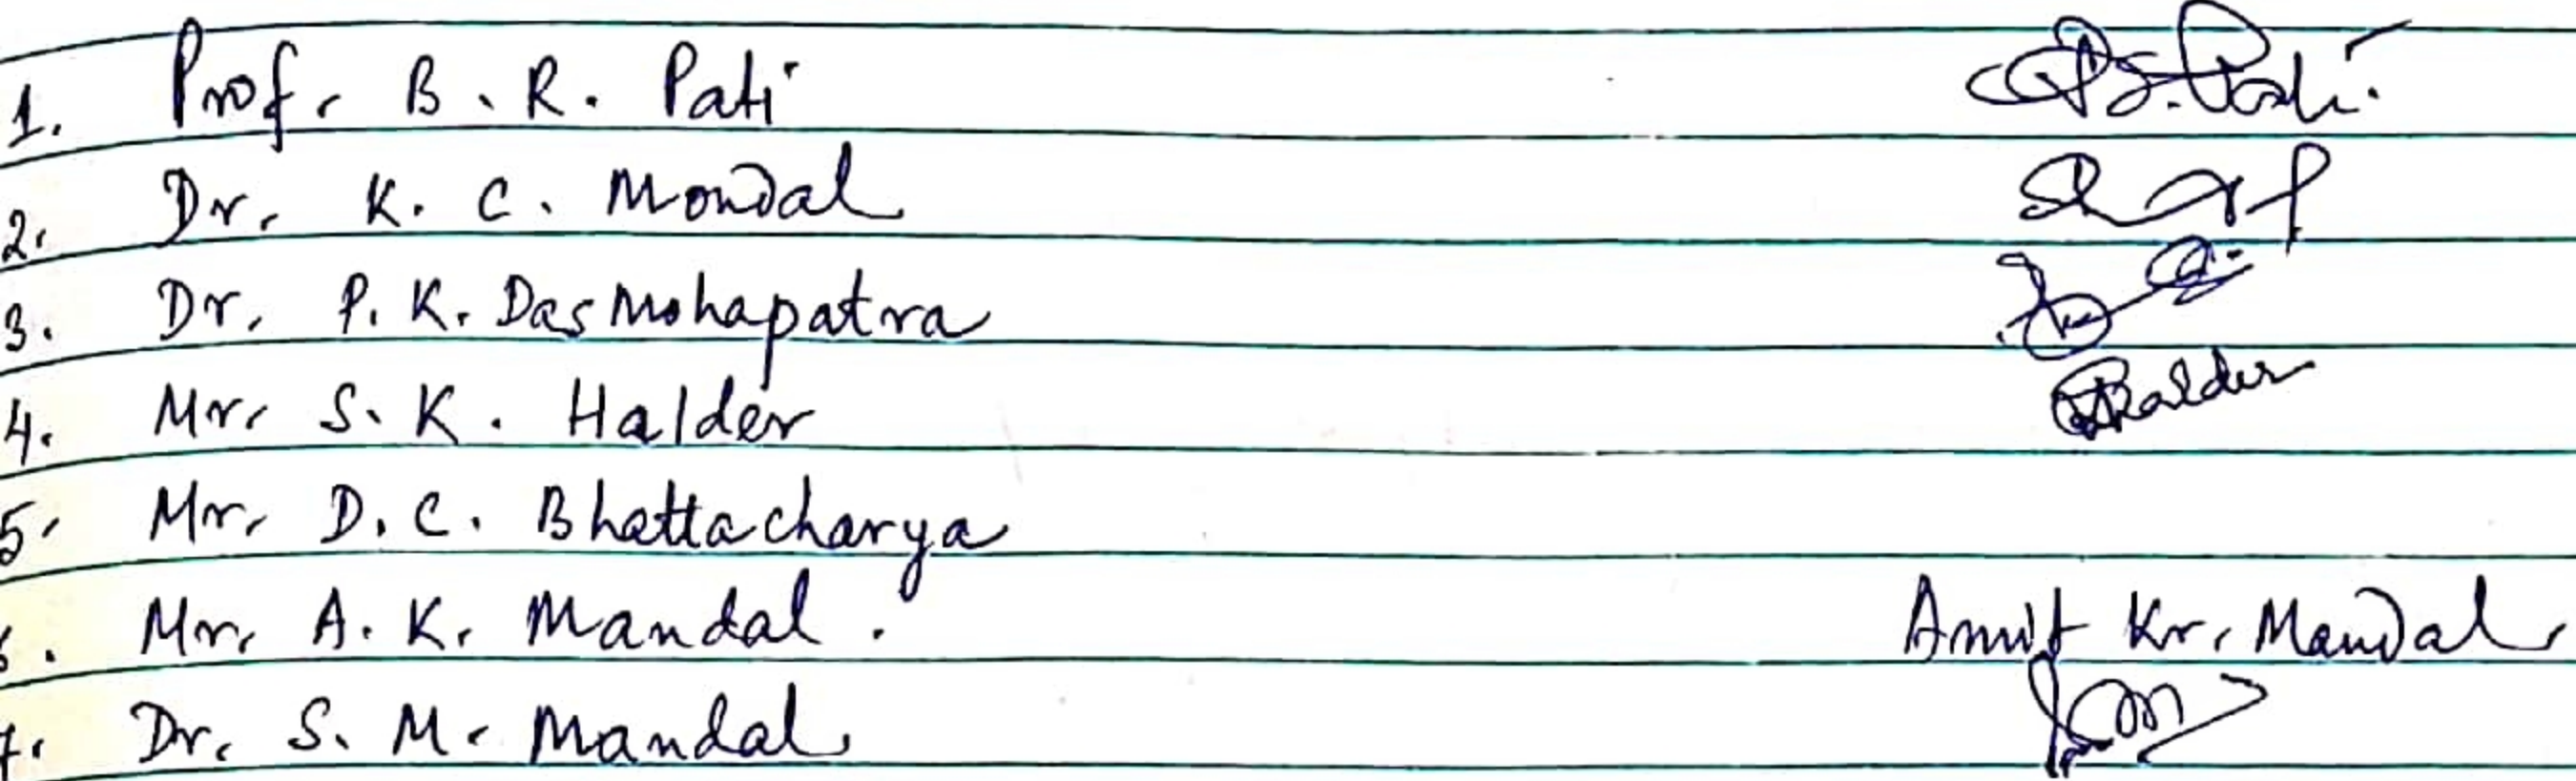 1. Prof. B. R. Pati
2. Dr. K. C. Mondal
3. Dr. P. K. Das Mohapatra
4. Mr. S. K. Halder Halder
5. Mr. D. C. Bhattacharya
6. Mr. A. K. Mandal. Amit Kr. Mandal
7. Dr. S. M. Mandal